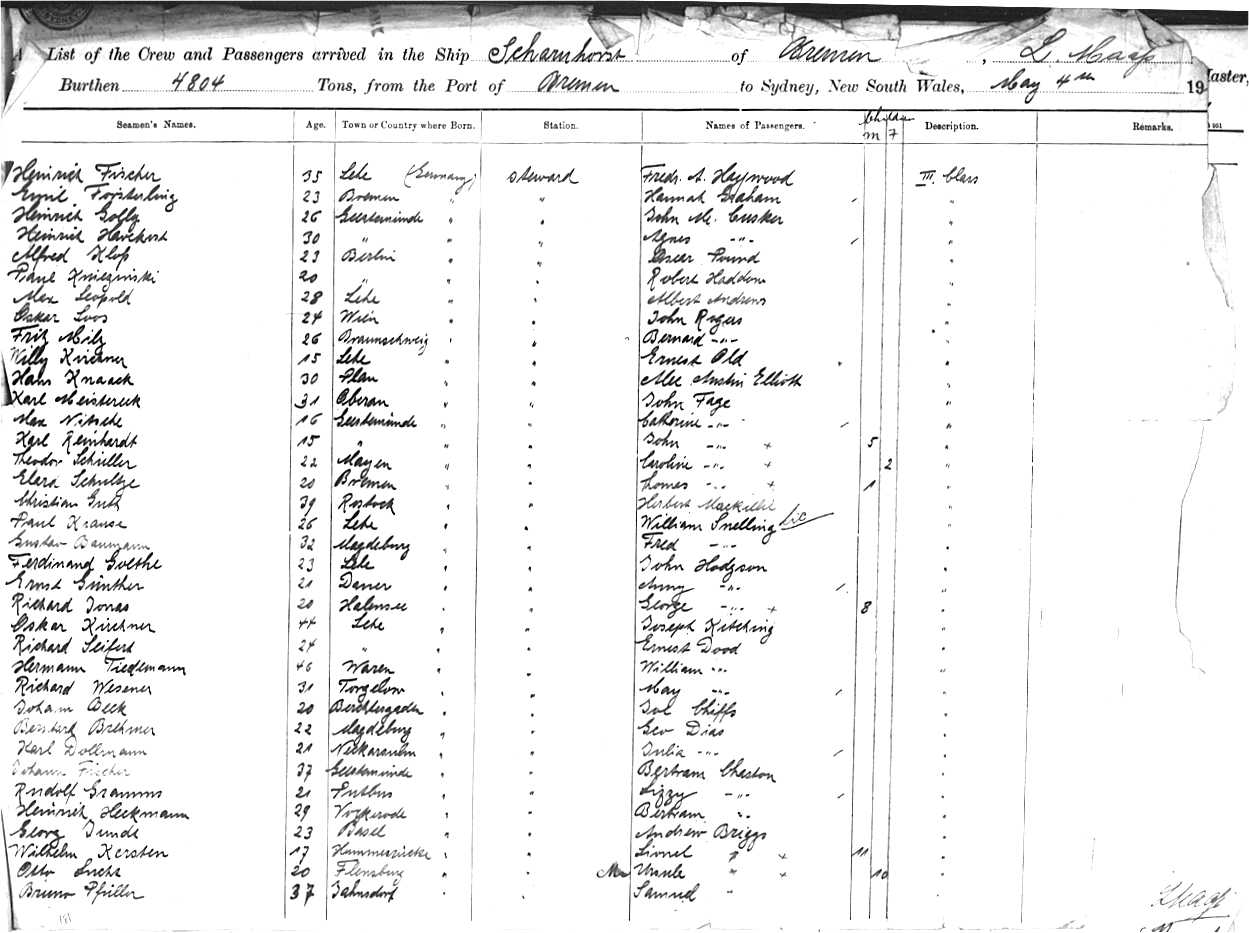 List of the Crew and Passengers arrived in the Ship Scharnhorst of Bremen, L. Maass
Master,
Burthen 4804 Tons, from the Port of Bremen to Sydney, New South Wales, May 4th 19
Children
Seamen's Names. Age. Town or Country where Born. Station. Names of Passengers. M F Description. Remarks.
Heinrich Fischer 35 Lehe (Germany) steward Fredr. A. Haywood III. Class
Emil Försterling 23 Bremen " " Hannah Graham "
Heinrich Golly 26 Geestemünde " " John Mc. Cusker "
Heinrich Havekost 30 " " " Agnes -"- "
Alfred Klop 23 Berlin " " Oscar Pound "
Paul Kniezinski 20 " " " Robert Haddow "
Max Leopold 28 Lehe " " Albert Andrews "
Oskar Loos 24 Wien " " John Rogers "
Fritz Milz 26 Braunschweig " " Bernard -"- "
Willy Kirchner 15 Lehe " " Ernest Old "
Hans Knaack 30 Plau " " Alec Austin Elliott "
Karl Meistereck 31 Oberau " " John Fage "
Max Nitsche 16 Geestemünde " " Catherine -"- "
Karl Reinhardt 15 " " " John -"- + 5 "
Theodor Schüller 22 Mayen " " Caroline -"- + 2 "
Schultze 20 Bremen " " -"- + 1 "
Christian 39 Rostock " " Herbert "
Paul Krause 26 Lehe " " William Snelling "
Gustav Baumann 32 Magdeburg " " Fred -"- "
Ferdinand Goethe 23 Lehe " " John Hodgson "
Ernst Günther 21 " " Anny -"- "
Richard Jonas 20 Halensee " " George -"- + 8 "
Oskar Kirchner 44 Lehe " " Joseph Kitching "
Richard Seifert 24 " " " Ernest Dood "
Hermann Tiedemann 46 Waren " " William -"- "
Richard Wesener 31 Torgelow " " May -"- "
Joham Beck 20 Berchtesgaden " " "
Bernhard Brehmer 22 Magdeburg " " Geo Dias "
Karl Dollmann 21 Neckarsulm " " Julia -"- "
Johann Fischer 37 Geestemünde " " Bertram Chaston "
Rudolf Gramms 21 Putbus " " Lizzy -"- "
Heinrich Heckmann 29 Vockerode " " Bertram -"- "
Georg 23 Basel " " Andrew Briggs "
Wilhelm Kersten 17 " " Lionel " + 11 "
Otto 20 Flensburg " " Ursule " + 10 "
Bruno Pfüller 37 Jahnsdorf " " Samuel " "
L Maass